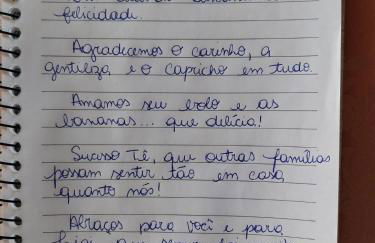 felicidade.
Agradecemos o carinho, a
gentileza e o capricho em tudo.
Amamos seu bolo e as
bananas... que delícia!
Sucesso Tê, que outras famílias
possam sentir tão em casa
quanto nós!
Abraços para você e para